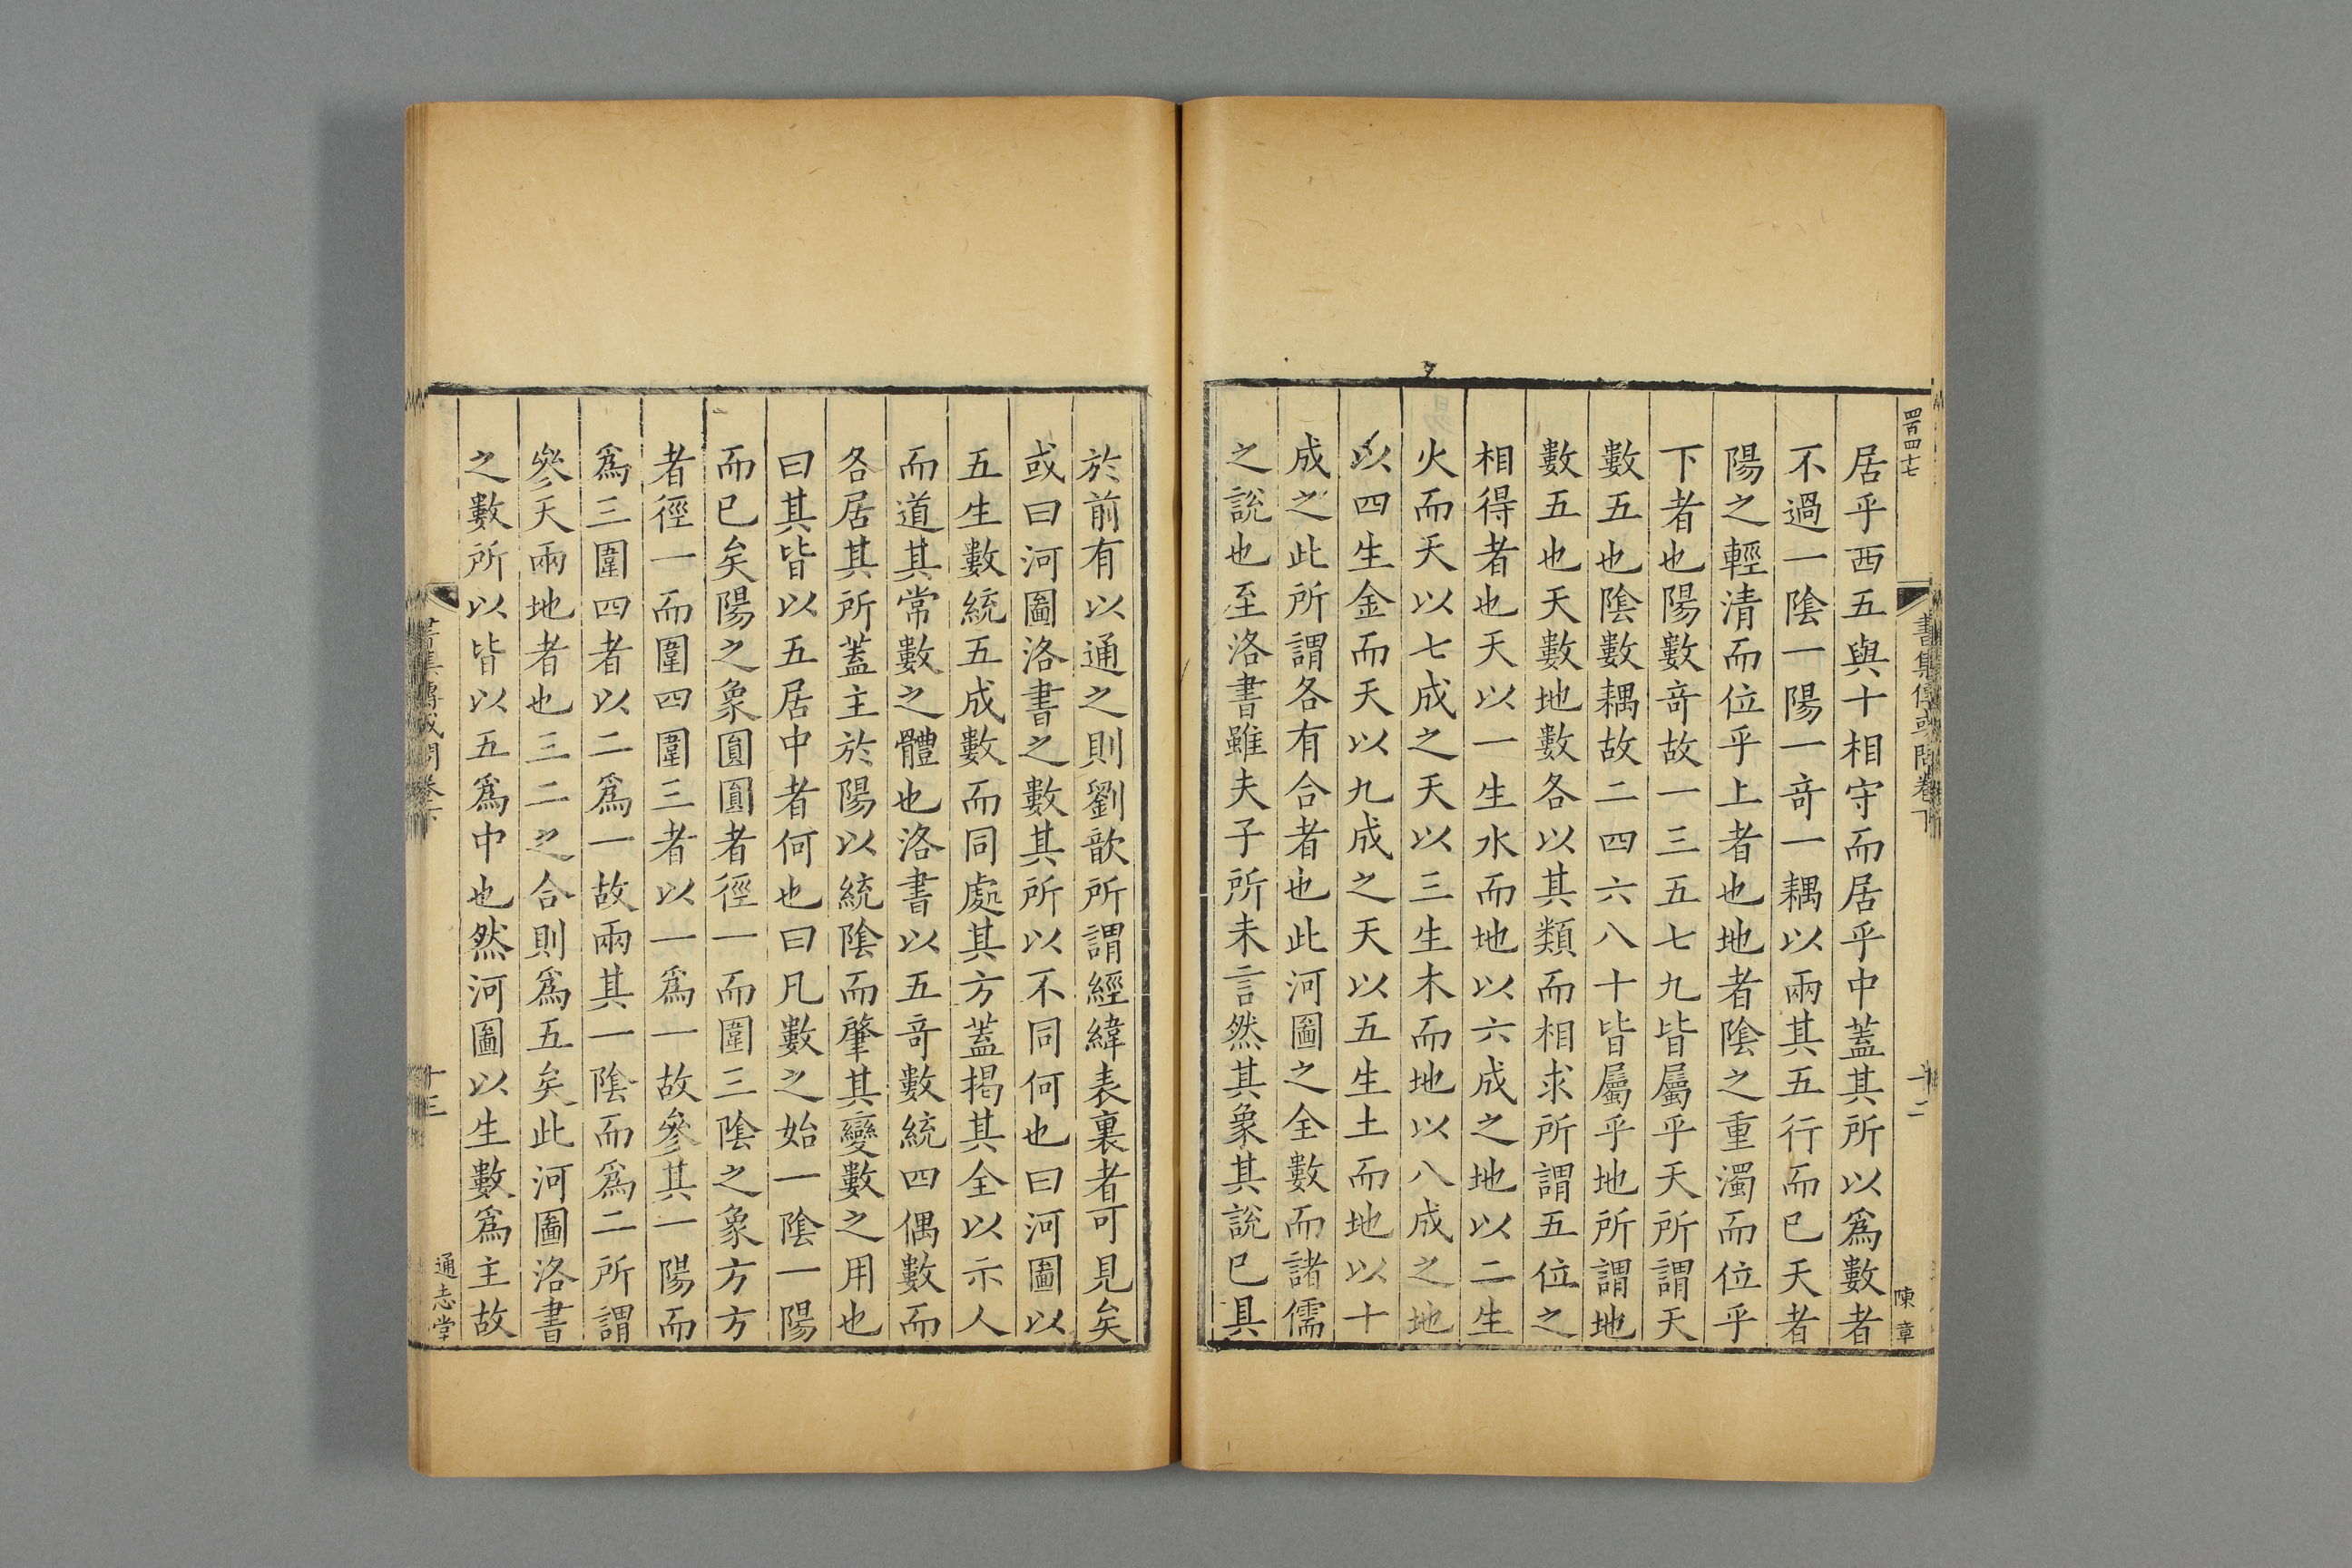 四百四十七
書集傳或問卷下
十二
陳章
居乎西五與十相守而居乎中蓋其所以爲數者
不過一陰一陽一竒一耦以兩其五行而已天者
陽之輕清而位乎上者也地者陰之重濁而位乎
下者也陽數竒故一三五七九皆屬乎天所謂天
數五也陰數耦故二四六八十皆屬乎地所謂地
數五也天數地數各以其類而相求所謂五位之
相得者也天以一生水而地以六成之地以二生
火而天以七成之天以三生木而地以八成之地
以四生金而天以九成之天以五生土而地以十
成之此所謂各有合者也此河圖之全數而諸儒
之說也至洛書雖夫子所未言然其象其說已具
於前有以通之則劉歆所謂經緯表裏者可見矣
或曰河圖洛書之數其所以不同何也曰河圖以
五生數統五成數而同處其方蓋揭其全以示人
而道其常數之體也洛書以五竒數統四偶數而
各居其所蓋主於陽以統陰而肇其變數之用也
曰其皆以五居中者何也曰凡數之始一陰一陽
而已矣陽之象圓圓者徑一而圍三陰之象方方
者徑一而圍四圍三者以一爲一故參其一陽而
爲三圍四者以二爲一故兩其一陰而爲二所謂
參天兩地者也三二之合則爲五矣此河圖洛書
之數所以皆以五爲中也然河圖以生數爲主故
書集傳或問卷下
十三
通志堂